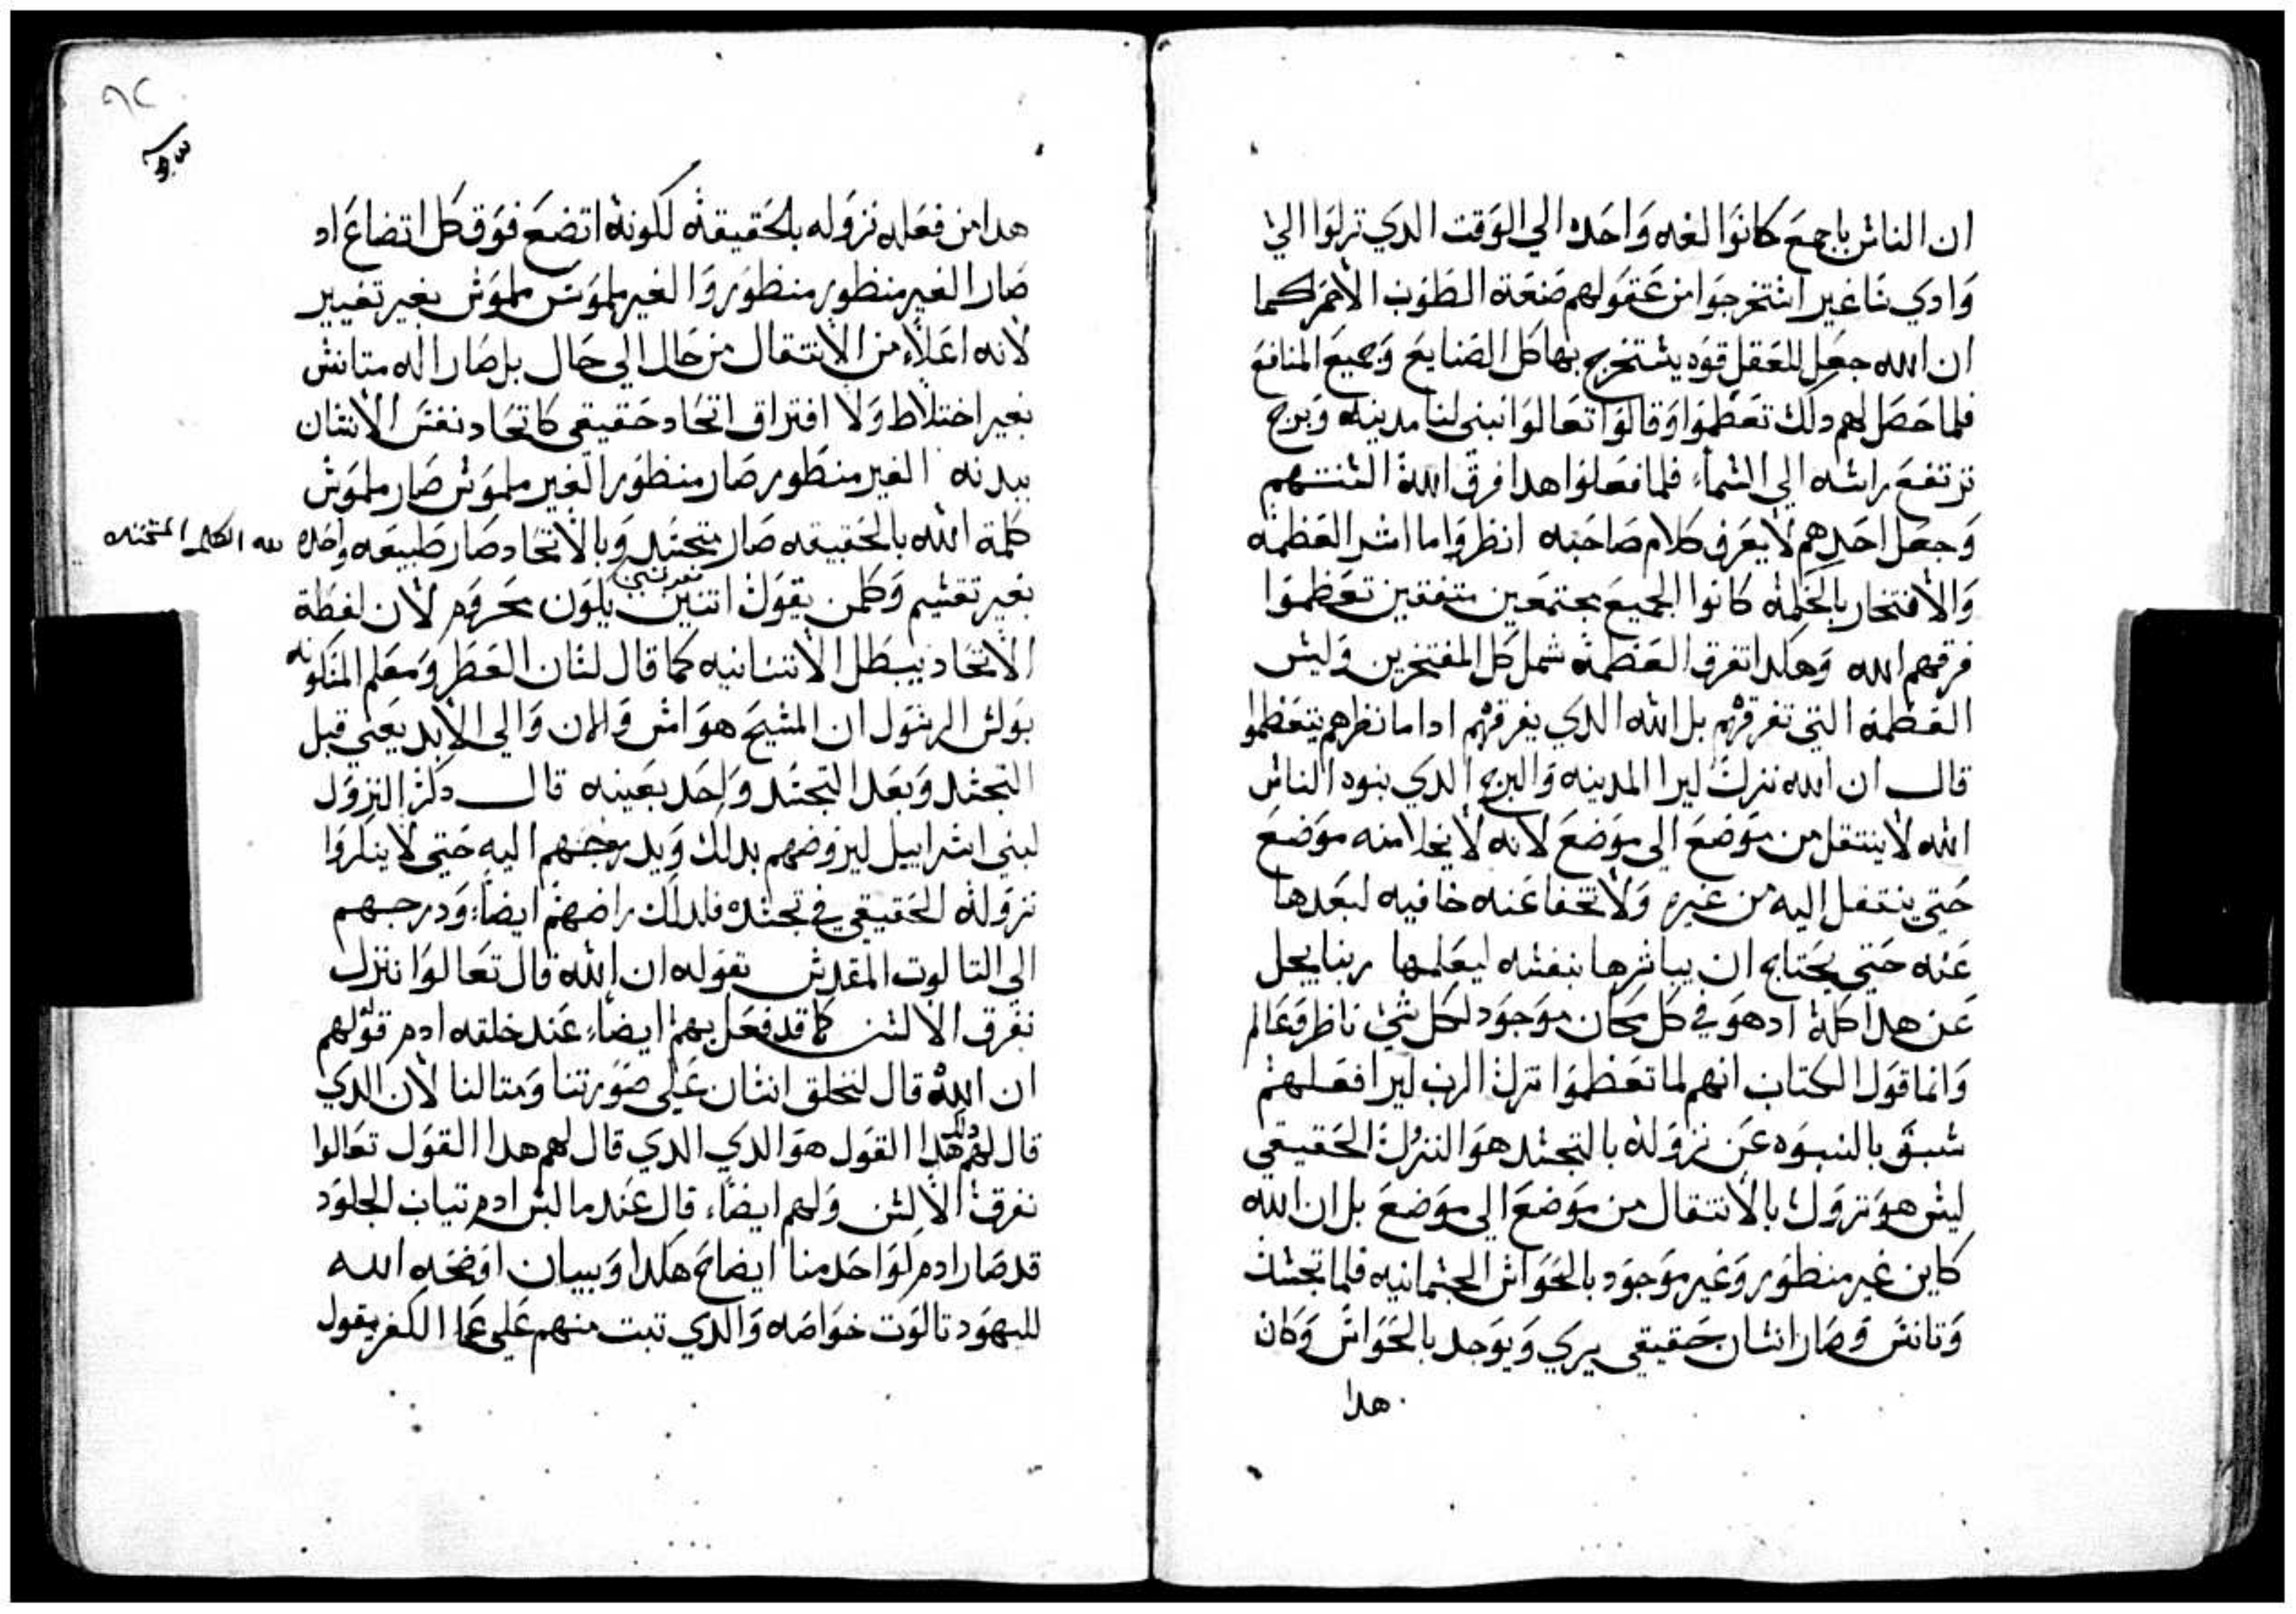 ان الناس باجمع كانوا لغه واحده الي الوقت الدي نزلوا الي
وادي شاغير استخرجوا من عقولهم صنعة الطوب الاحمر كما
ان الله جعل للعقل قوه يستخرج بها كل الصنايع وجميع المنافع
فلما حصل لهم دلك تعظموا وقالوا تعالوا نبني لنا مدينه وبرج
ترتفع راسه الي السماء فلما فعلوا هدا فرق الله السنتهم
وجعل احدهم لا يعرف كلام صاحبه انظروا ما اشر العظمه
والافتخار بالحكمه كانوا الجميع مجتمعين متفقين تعظموا
فرقهم الله وهكدا تفرق العظمه شمل كل المفتخرين وليس
العظمه التي تفرقهم بل الله الدي يفرقهم ادا ما نظرهم يتعظموا
قال ان الله نزل ليرا المدينه والبرج الدي بنوه الناس
الله لا ينتقل من موضع الي موضع لانه لا يخلا منه موضع
حتي ينتقل اليه من غيره ولا تخفا عنه خافيه لبعدها
عنه حتي يحتاج ان يباشرها بنفسه ليعلمها ربنا يجل
عن هدا كله اد هو في كل مكان موجود لكل شي ناظر وعالم
وانما قول الكتاب انهم لما تعظموا نزل الرب ليرا فعلهم
سبق بالنبوه عن نزوله بالتجسد هو النزول الحقيقي
ليس هو نزول بالانتقال من موضع الي موضع بل ان الله
كاين غير منظور وغير موجود بالحواس الجسمانيه فلما تجسد
وتانس وصار انسان حقيقي يري ويوجد بالحواس وكان
هدا
٩٢
هدا من فعله نزوله بالحقيقه لكونه اتضع فوق كل اتضاع اد
صار الغير منظور منظور والغير ملموس ملموس بغير تغيير
لانه اعلاء من الانتقال من حال الي حال بل صار اله متانس
بغير اختلاط ولا افتراق اتحاد حقيقي كاتحاد نفس الانسان
ببدنه الغير منظور صار منظور الغير ملموس صار ملموس
كلمة الله بالحقيقه صار متجسد وبالاتحاد صار طبيعه واحده لله الكلمه المتجسده
بغير تقسيم وكلمن يقول اتنين يكون محروم لان لفظة
الاتحاد يبطل الاتننانيه كما قال لسان العطر ومعلم المسكونه
بولس الرسول ان المسيح هو امس والان والي الابد يعني قبل
التجسد وبعد التجسد واحد بعينه قال دكر النزول
لبني اسراييل ليروضهم بدلك ويدرجهم اليه حتي لا ينكروا
نزوله الحقيقي في تجسده فلدلك راضهم ايضاً ودرجهم
الي التالوت المقدس بقوله ان الله قال تعالوا ننزل
نفرق الالسن كما قد فعل بهم ايضاً عند خلقه ادم قولهم
ان الله قال لنخلق انسان علي صورتنا ومتالنا لان الدي
قال لهم دلك هدا القول هو الدي الدي قال لهم هدا القول تعالوا
نفرق الالسن ولهم ايضاً قال عند ما لبس ادم تياب الجلود
قد صار ادم كواحد منا ايضاح هكدا وبيان اوضحه الله
لليهود تالوت خواصه والدي تبت منهم علي عما الكفر يقول